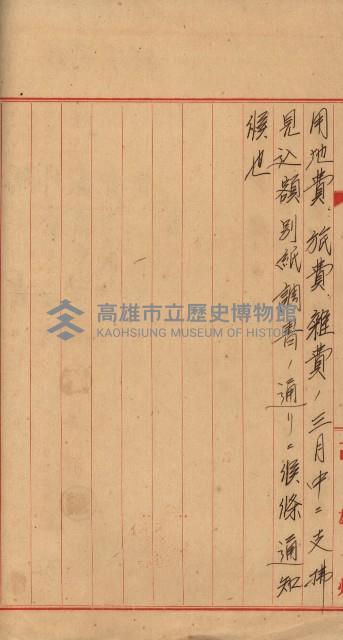 用地費、旅費、雑費ノ三月中ニ支拂
見込額別紙調書ノ通リニ候條通知
候也
高雄市立歷史博物館
KAOHSIUNG MUSEUM OF HISTORY
高雄州